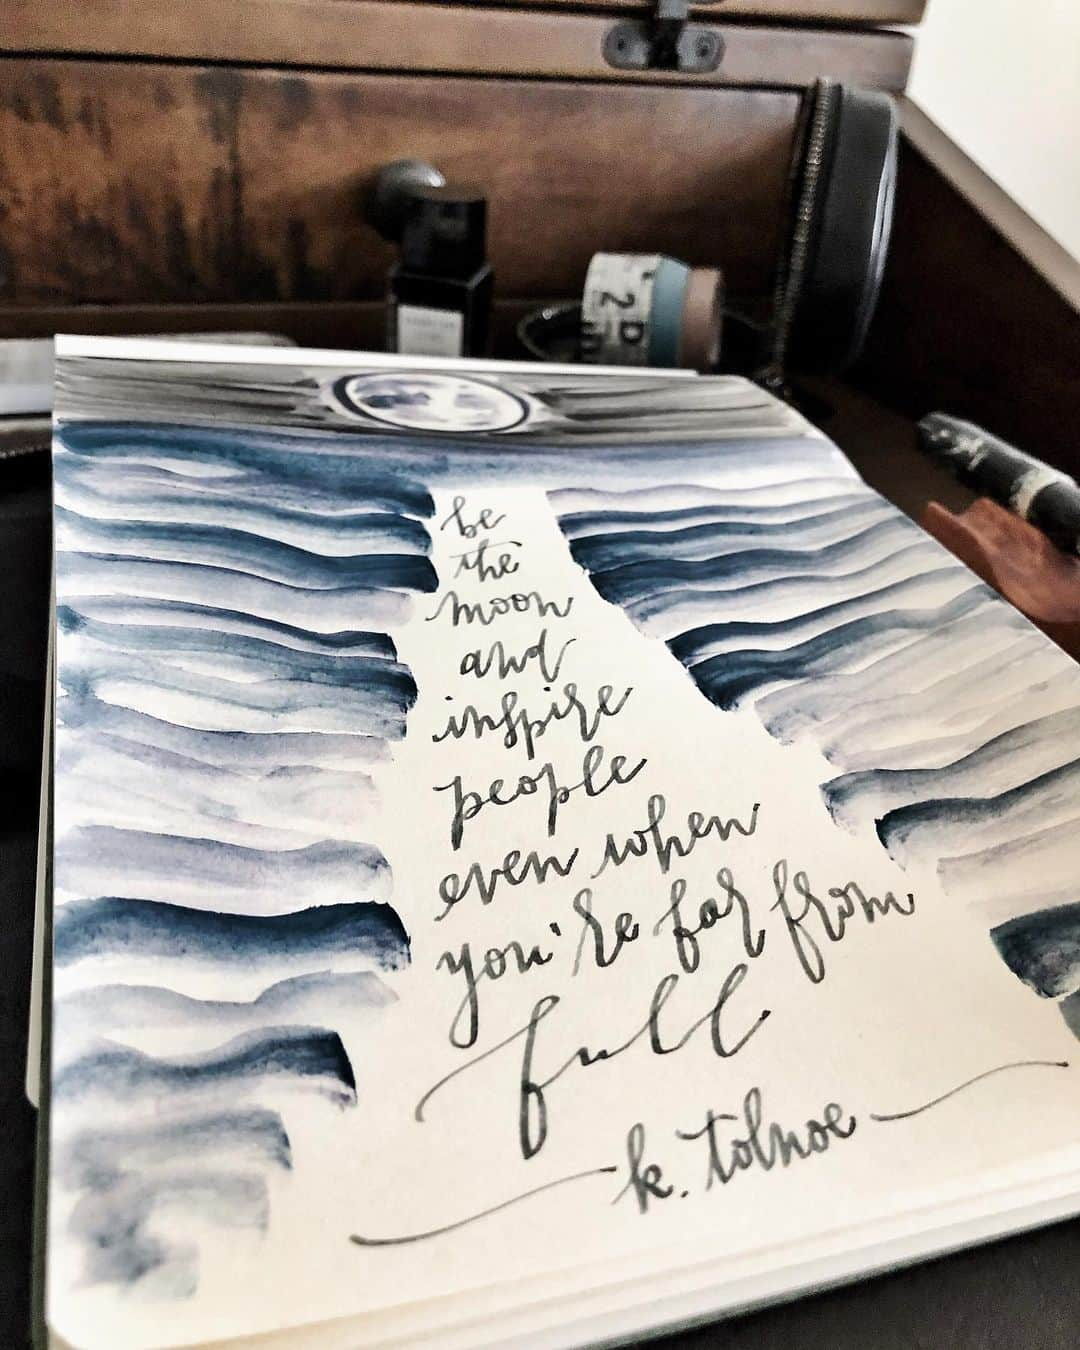 be
the
moon
and
inspire
people
even when
you're far from
full
k. tolnoe